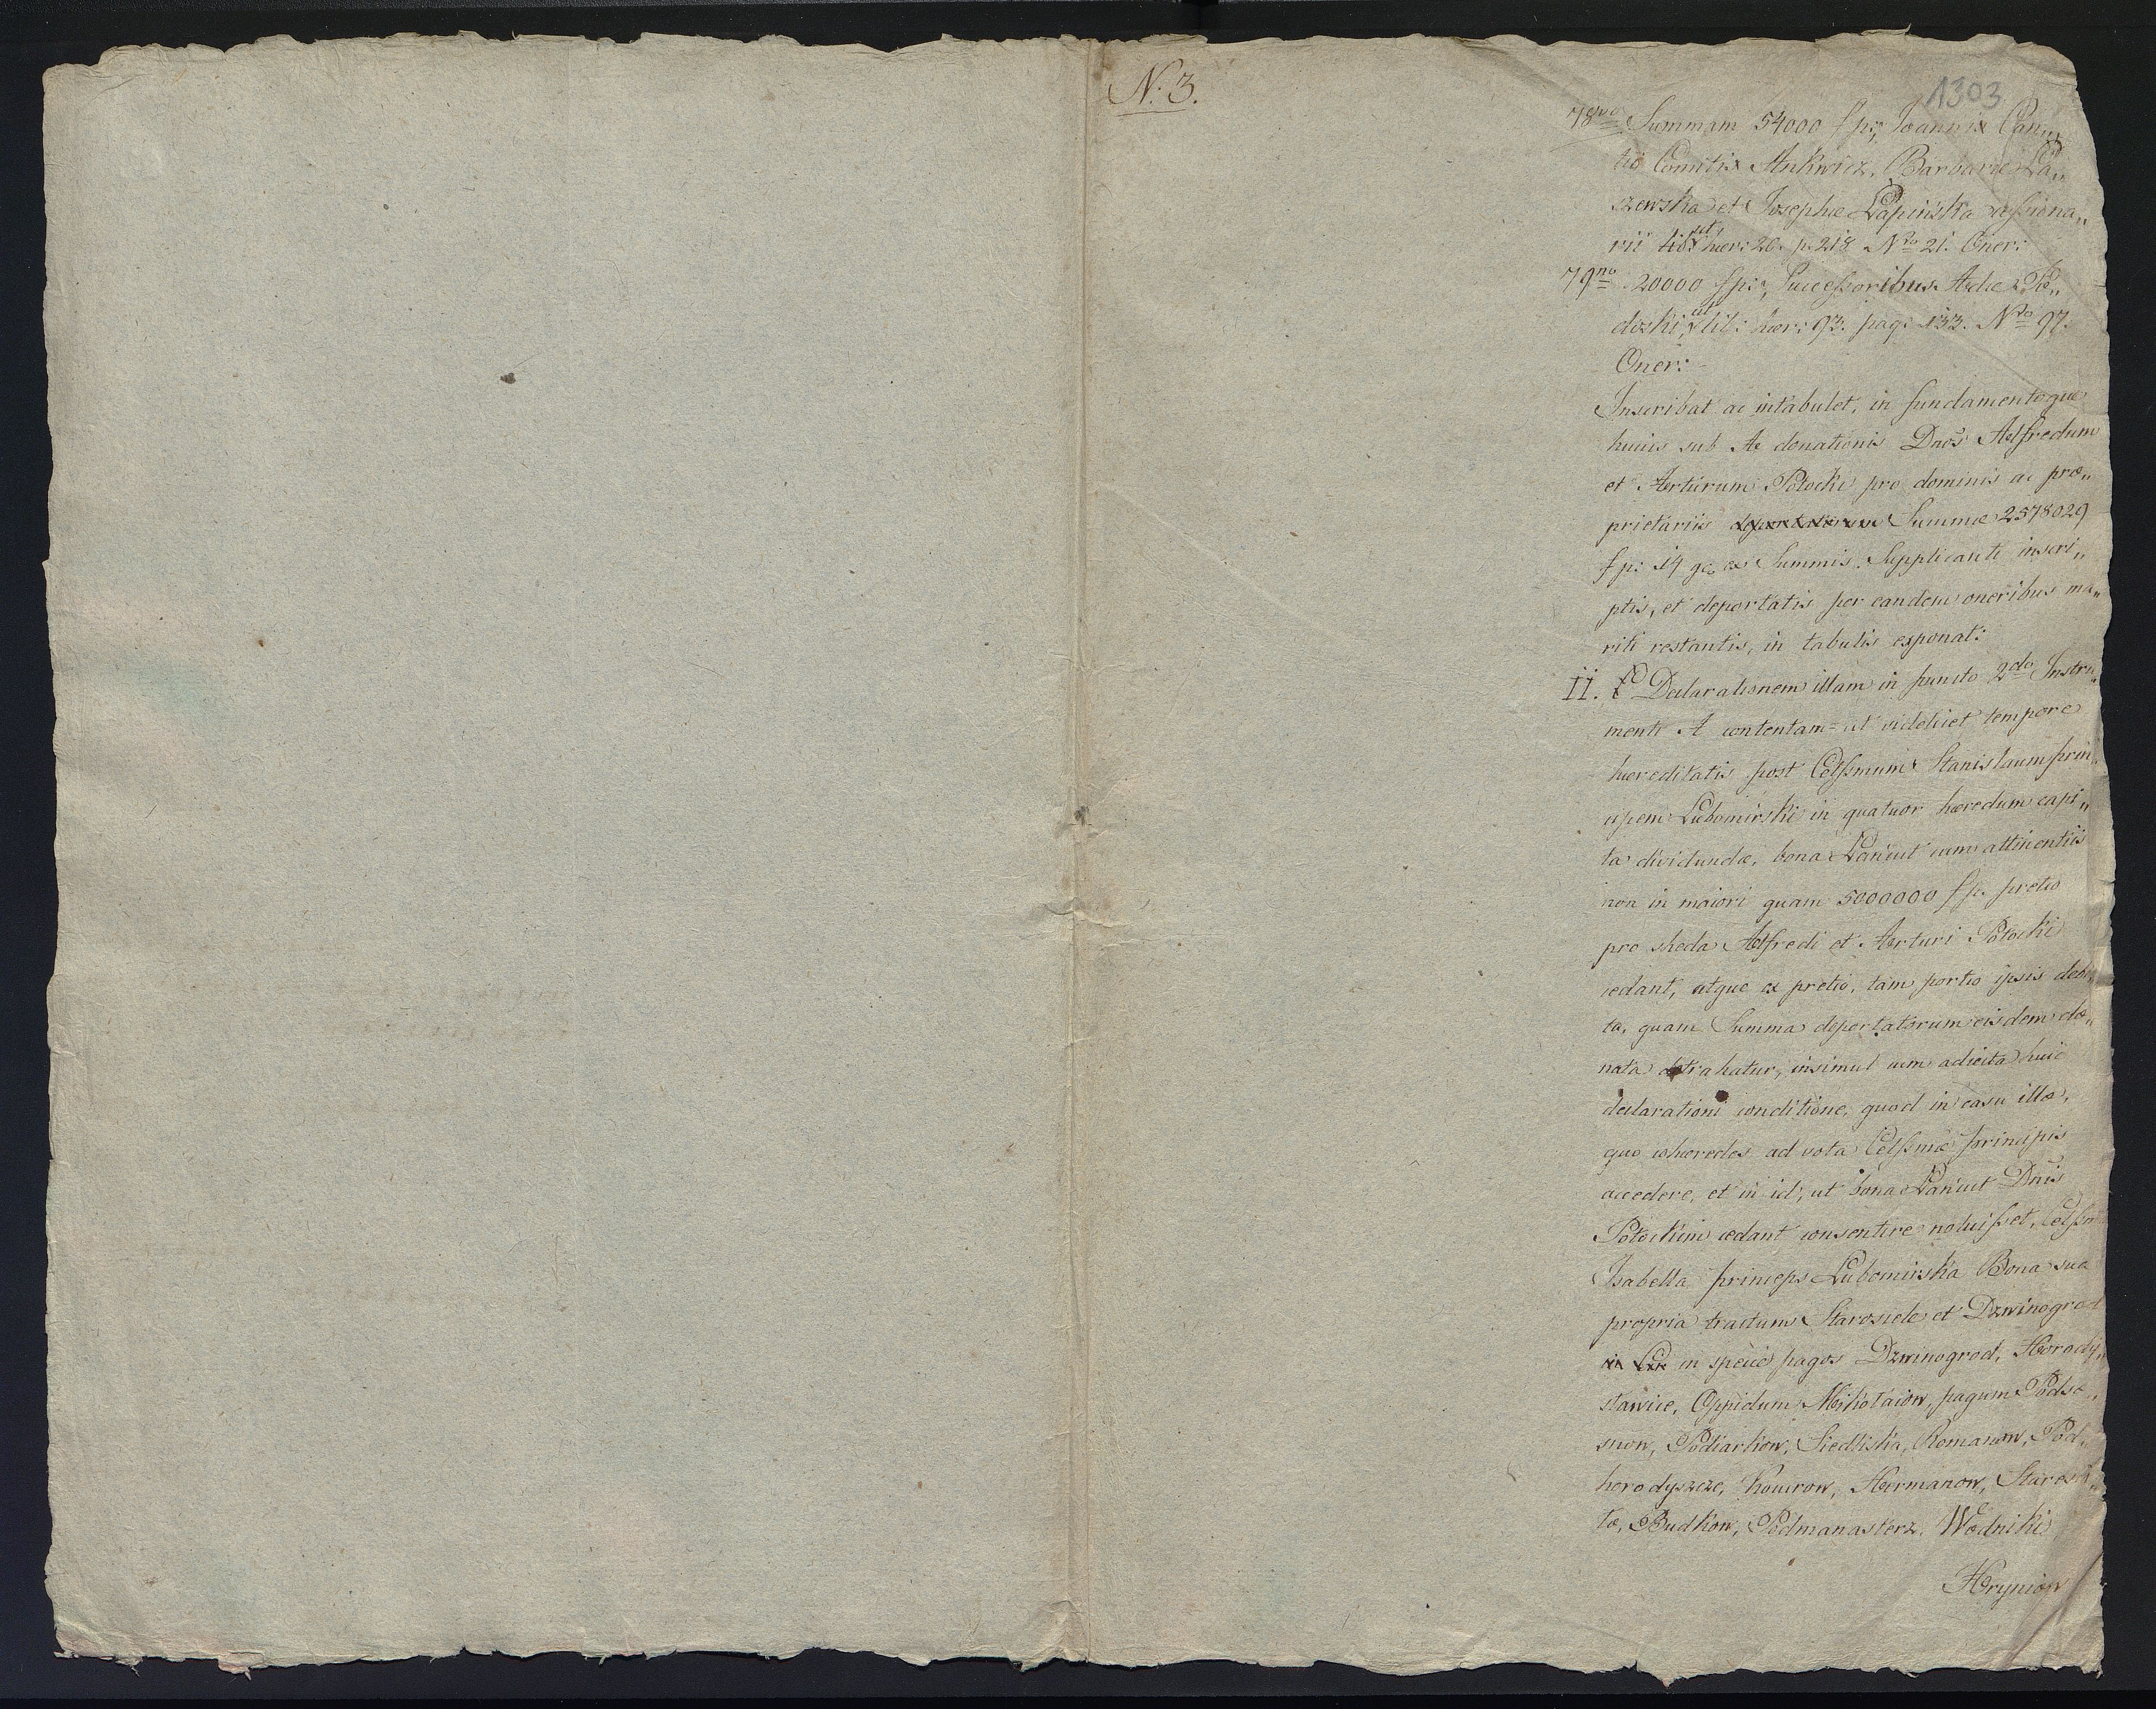 N: 3.
1303
78vo Summam 54000 fp:, Joannis Canu„
tio Comitis Ankwicz, Barbarae Ła„
szewska et Josephae Łapinska cessiona„
rii ut libr haer: 20. p. 218 Nro 21. Oner:
79no 20000 fp:, Successoribus Adae Po„
doski, ut lib: haer: 93. pag: 133. Nro 97.
Oner:
Inscribat ac intabulet, in fundamentoque
huius sub A donationis Dnos Alfredum
et Arturum Potocki pro dominis ac pro„
prietariis Summae 2578029
fp: 14 g. ex Summis Supplicanti inscri„
ptis, et deportatis per eandem oneribus ma„
riti restantis, in tabulis exponat:
II. Declarationem illam in puncto 2do Instru„
menti A contentam = ut videlicet tempore
haereditatis post Celssmum Stanislaum prin„
cipem Lubomirski in quatuor haeredum capi„
ta dividundae, bona Łancut cum attinentiis
non in maiori quam 5000000 fp. pretio
pro sheda Alfredi et Arturi Potocki
cedant, utque ex pretio, tam portio ipsis debi„
ta, quam Summa deportatorum eisdem do„
nata detrahatur, insimul cum adiecta huic
declarationi conditione, quod in casu illo,
quo cohaeredes ad vota Celssmae principis
accedere, et in id, ut bona Łancut Dnis
Potockim cedant consentire noluisset, Celssma
Isabella princeps Lubomirska Bona sua
propria tractum Starosiele et Dzwinogrod
in specie pagos Dzwinogrod, Horody„
stawice, Oppidum Mikołaiow, pagum Podsa„
snow, Podiarkow, Siedliska, Romanow, Pod„
horodyszcze, Kocurow, Hermanow, Stare
to, Budkow, Podmanasterz, Wodniki
Hryniow